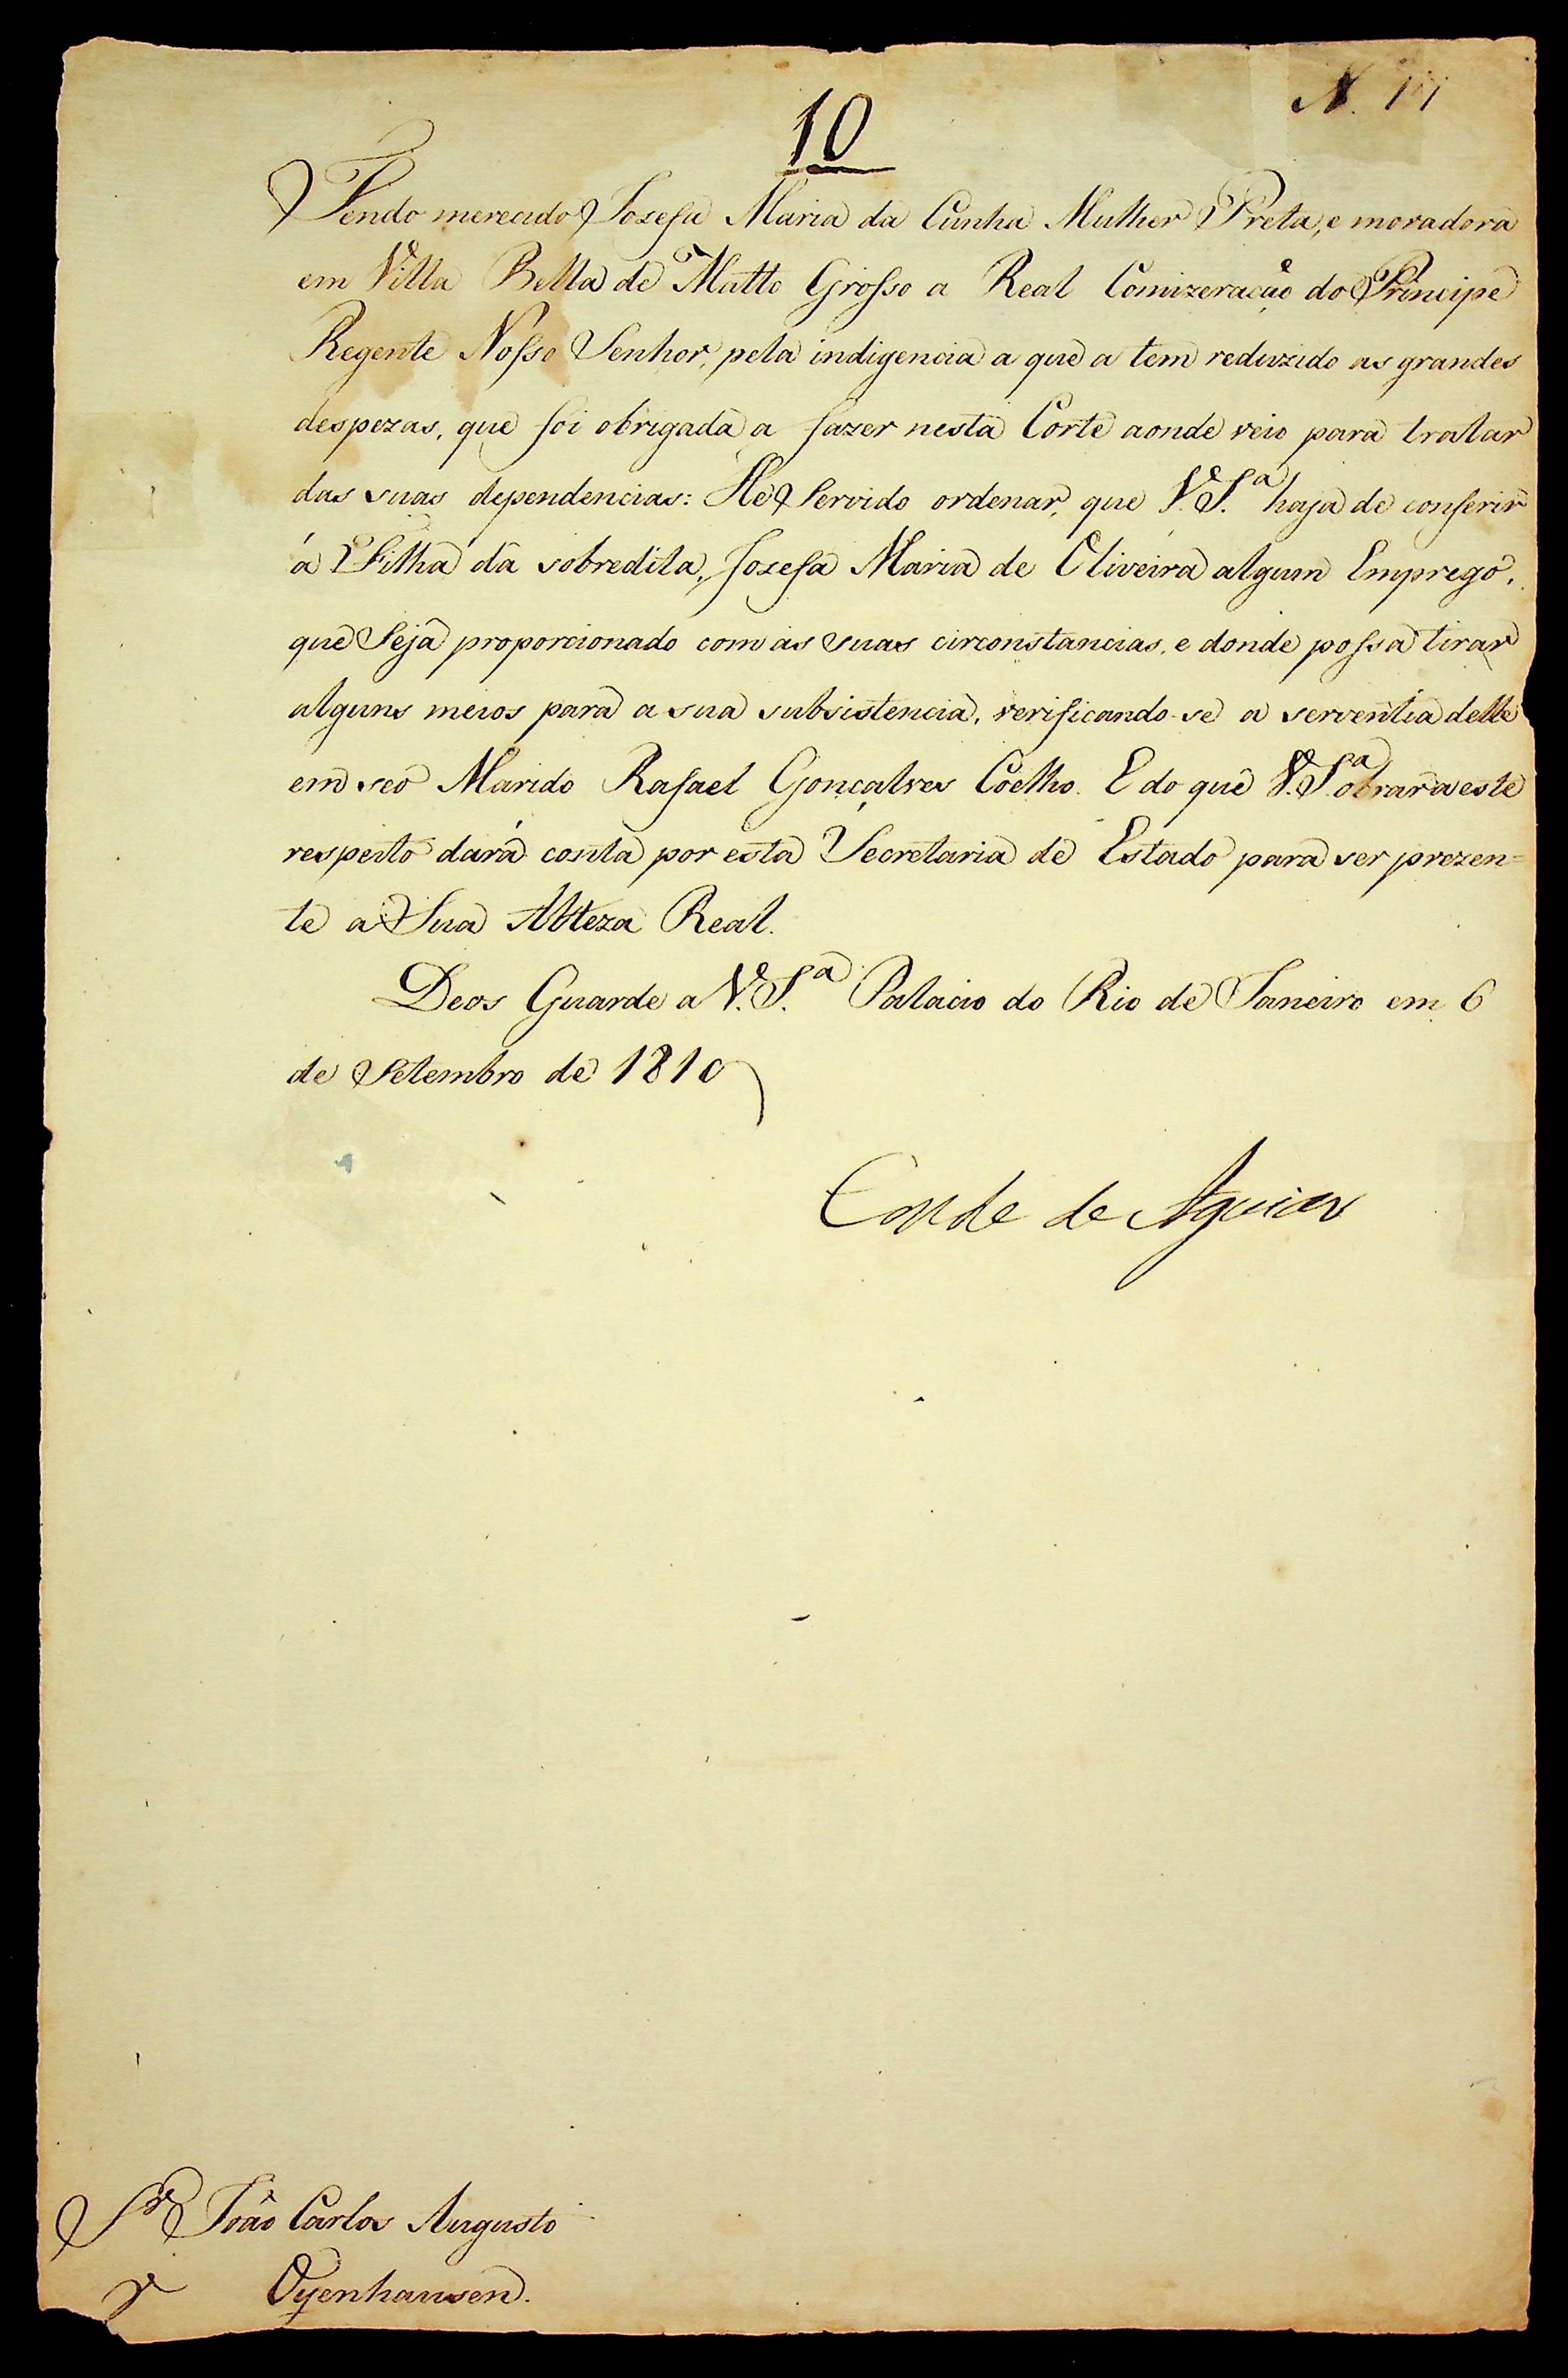 N. 11
10
Tendo merecido Josefa Maria da Cunha Mulher Preta, e moradora
em Villa Bella de Matto Grosso a Real Comizeração do Principe
Regente Nosso Senhor, pela indigencia a que a tem reduzido as grandes
despezas, que foi obrigada a fazer nesta Corte aonde veio para tratar
das suas dependencias: He Servido ordenar, que V. S.ª haja de conferir
á Filha da sobredita, Josefa Maria de Oliveira algum Emprego,
que Seja proporcionado com as suas circonstancias, e donde possa tirar
alguns meios para a sua subsistencia, verificando-se a serventia delle
em seo Marido Rafael Gonçalves Coelho. E do que V. S.ª obrar a este
respeito dará conta por esta Secretaria de Estado para ser prezen=
te a Sua Alteza Real.
Deos Guarde a V. S.ª Palacio do Rio de Janeiro em 6
de Setembro de 1810
Conde de Aguiar
Sr. João Carlos Augusto
Oyenhausen.